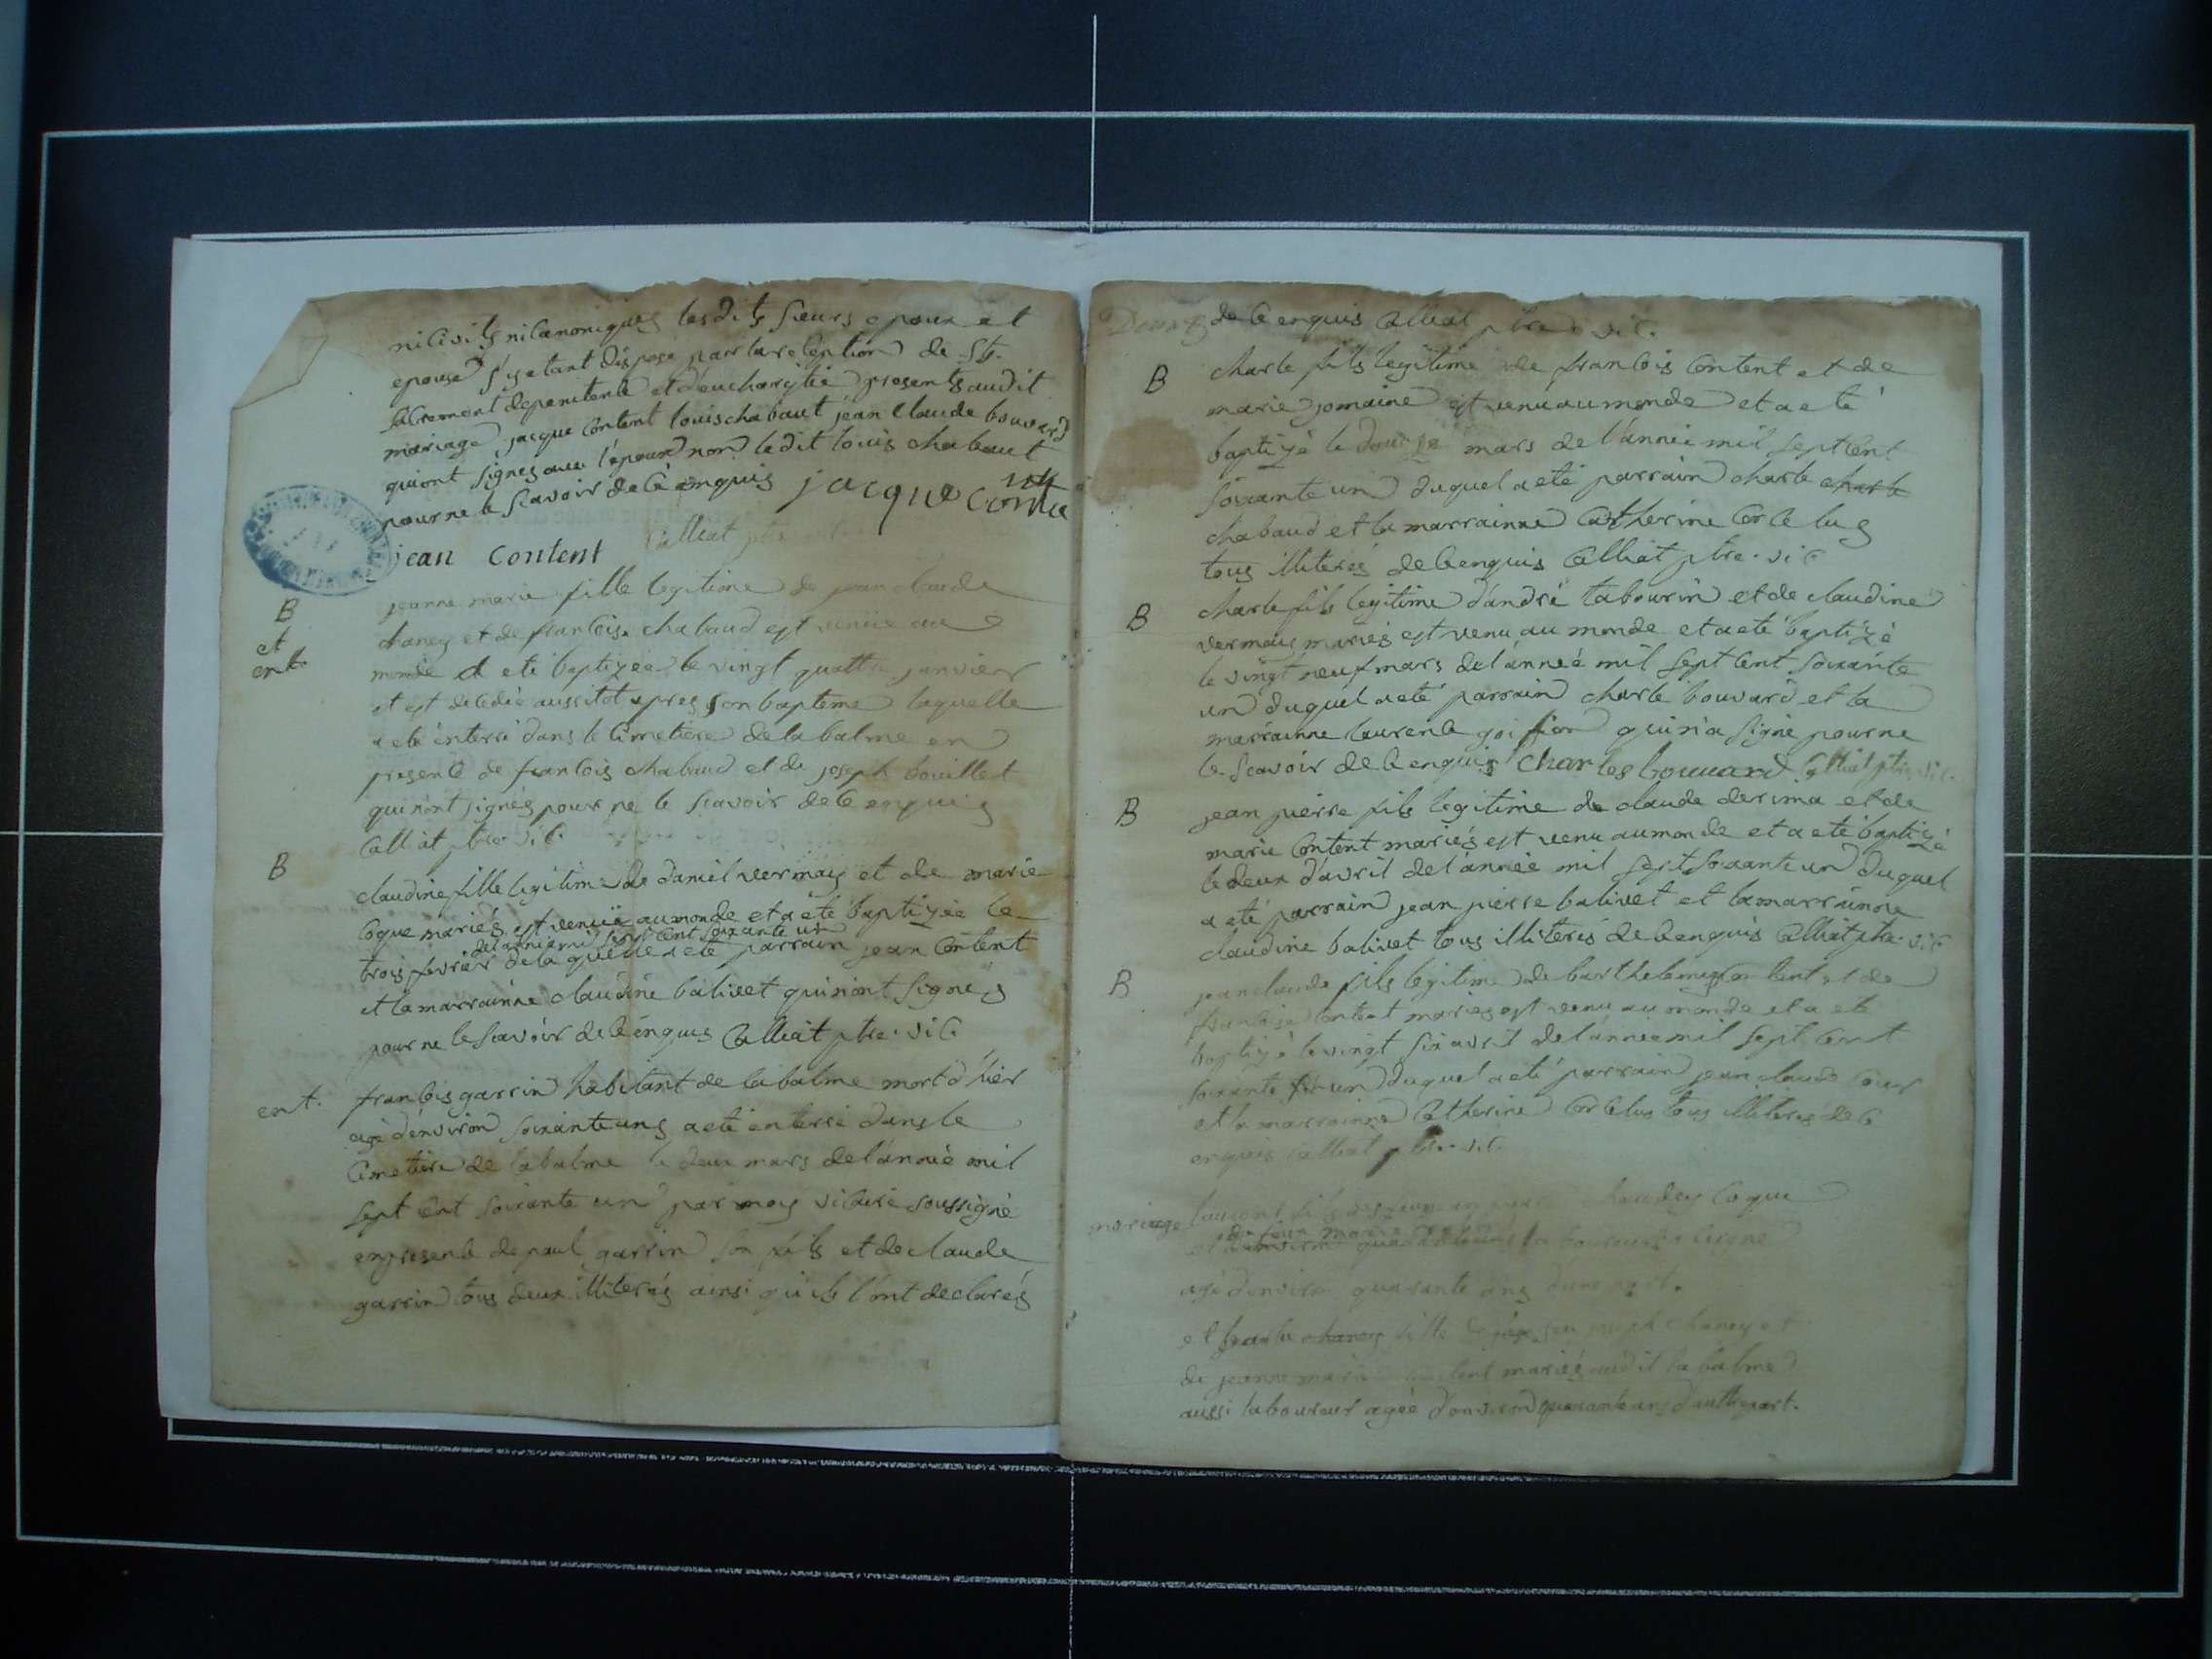 ni civils ni canoniques lesdits sieurs epoux et
epouse s'y etant disposé par la reception de St.
sacrement de penitence et d'eucharistie presents audit
mariage jacque Content louis chabaut jean Claude bouvard
qui ont signes avec l'epoux non ledit louis chabaut
pour ne le scavoir de ce enquis jacque
jean Content Calliat ptre
B jeanne marie fille legitime de jean claude
et chaney et de francoise chabaud est venüe au
ent. monde et eté baptizée le vingt quattre janvier
et est decedée aussitot apres son bapteme laquelle
a eté enterré dans le cimetiere de la balme en
presence de francois chabaud et de joseph bouillet
qui n'ont signés pour ne le scavoir de ce enquis
Calliat ptre vic.
B claudine fille legitime de daniel vermay et de marie
coque mariés est venüe au monde et a été baptizée le
de l'anneé mil sept cent soixante un
trois fevrier de laquelle a eté parrain jean Content
et la marrainne claudine balivet qui n'ont signes
pour ne le scavoir de ce enquis Calliat ptre. vic.
ent. francois garrin habitant de la balme mort d'hier
agé d'environ soixante ans a eté enterré dans le
cimetiere de la balme le deux mars de l'anneé mil
sept cent soixante un par moy vicaire soussigné
en presence de paul garrin son fils et de claude
garrin tous deux illiterés ainsi qu'ils l'ont declarés
de ce enquis Calliat ptre vic.
B charle fils legitime de francois Content et de
marie jomaine est venu au monde et a eté
baptizé le douze mars de l'anneé mil sept cent
soixante un duquel a eté parrain charle charle
chabaud et la marrainne Catherine Corcelus
tous illiterés de ce enquis Calliat ptre. vic
B charle fils legitime d'andré tabourin et de claudine
vermay mariés est venu au monde et a eté baptizé
le vingt neuf mars de l'anneé mil sept cent soixante
un duquel a eté parrain charle bouvard et la
marrainne laurence goiffon qui n'a signé pour ne
le scavoir de ce enquis Charles bouuard Calliat ptre vic.
B jean pierre fils legitime de claude derima et de
marie Content mariés est venu au monde et a eté baptizé
le deux d'avril de l'anneé mil sept soixante un duquel
a eté parrain jean pierre balivet et la marrainne
claudine balivet tous illiterés de ce enquis Calliat ptre. vic
B jean claude fils legitime de barthelemy Content et de
francoise Content mariés est venu au monde et a eté
baptizé le vingt six avril de l'anneé mil sept cent
soixante un duquel a eté parrain jean claude
et la marrainne Catherine Corcelus tous illiterés de ce
enquis Calliat ptre. vic.
mariage laurent fils de coque
et
agé d'environ quarante ans d'une part.
et chaney fille joseph chaney et
de jeanne marie Content mariés audit la balme
aussi laboureur agée d'environ quarante ans d'autre part.